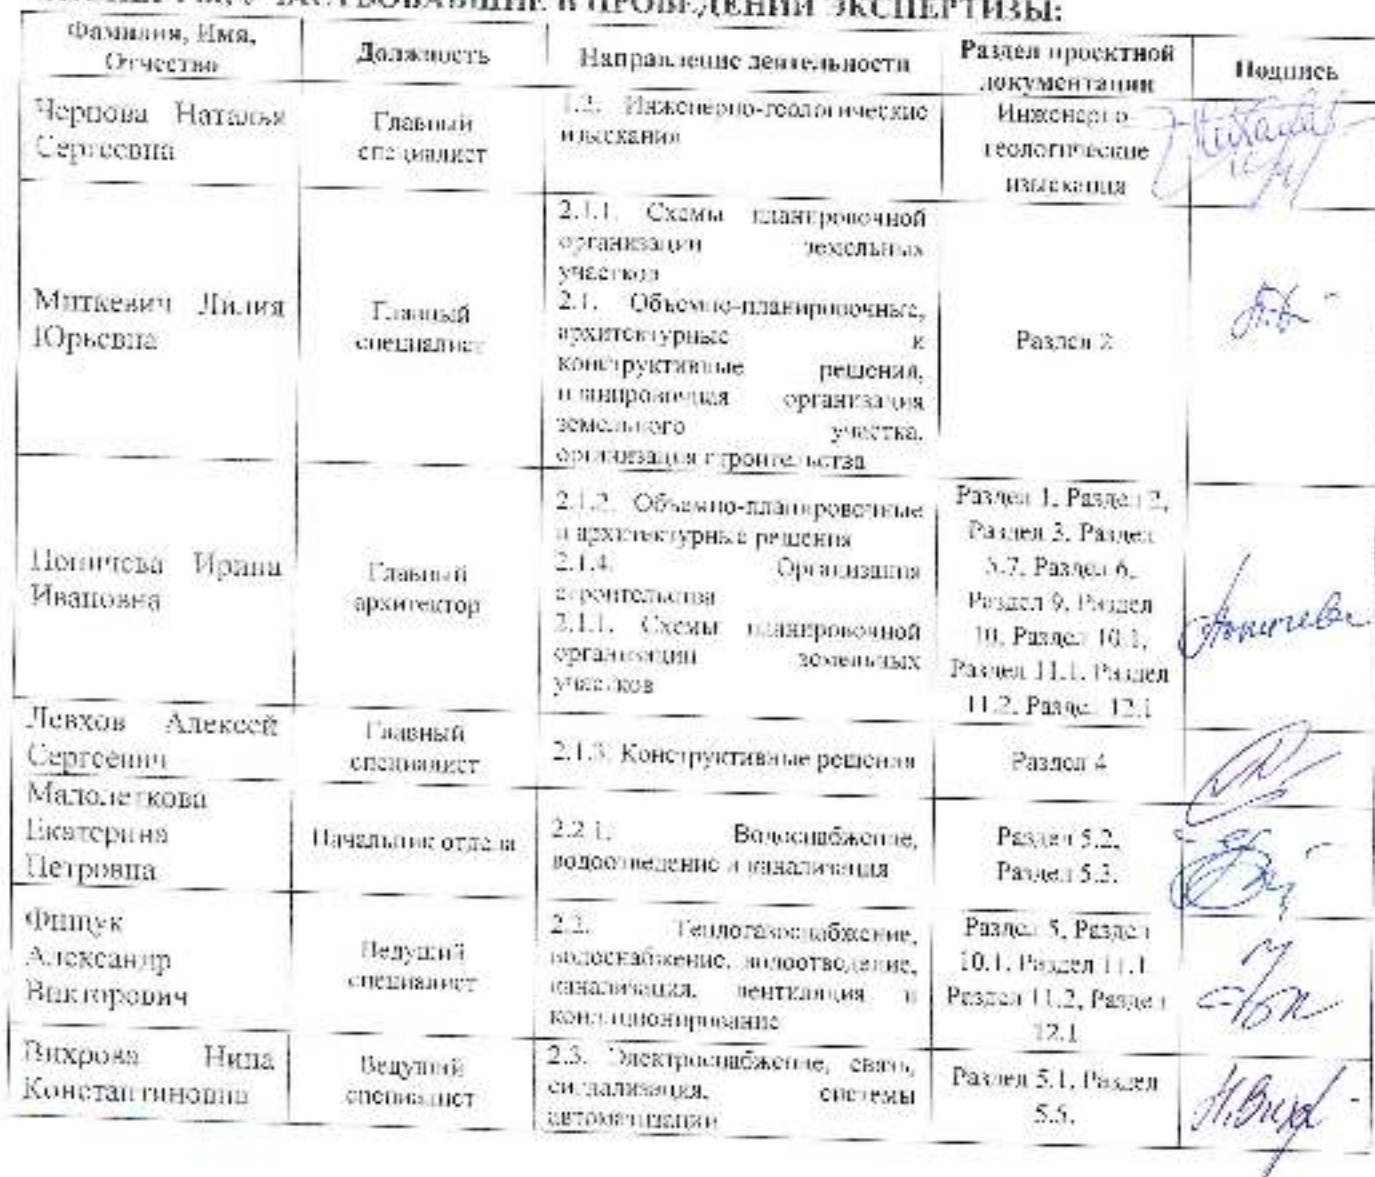 УЧАСТВОВАВШИЕ В ПРОВЕДЕНИИ ЭКСПЕРТИЗЫ:
Фамилия, Имя,
Отчество
Должность
Направление деятельности
Раздел проектной
документации
Подпись
Чернова Наталья
Сергеевна
Главный
специалист
1.2. Инженерно-геологические
изыскания
Инженерно
геологические
изыскания
Миткевич Лилия
Юрьевна
Главный
специалист
2.1.1. Схемы планировочной
организации земельных
участков
2.1. Объемно-планировочные,
архитектурные и
конструктивные решения,
планировочная организация
земельного участка,
организация строительства
Раздел 2
Ирина
Ивановна
Главный
архитектор
2.1.2. Объемно-планировочные
и архитектурные решения
2.1.4. Организация
строительства
2.1.1. Схемы планировочной
организации земельных
участков
Раздел 1, Раздел 2,
Раздел 3, Раздел
5.7, Раздел 6,
Раздел 9, Раздел
10, Раздел 10.1,
Раздел 11.1, Раздел
11.2, Раздел 12.1
Левхов Алексей
Сергеевич
Главный
специалист
2.1.3. Конструктивные решения
Раздел 4
Малолеткова
Екатерина
Петровна
Начальник отдела
2.2.1. Водоснабжение,
водоотведение и канализация
Раздел 5.2,
Раздел 5.3.
Фищук
Александр
Викторович
Ведущий
специалист
2.2. Теплогазоснабжение,
водоснабжение, водоотведение,
канализация, вентиляция и
кондиционирование
Раздел 5, Раздел
10.1, Раздел 11.1
Раздел 11.2, Раздел
12.1
Вихрова Нина
Константиновна
Ведущий
специалист
2.3. Электроснабжение, связь,
сигнализация, системы
автоматизации
Раздел 5.1, Раздел
5.5.